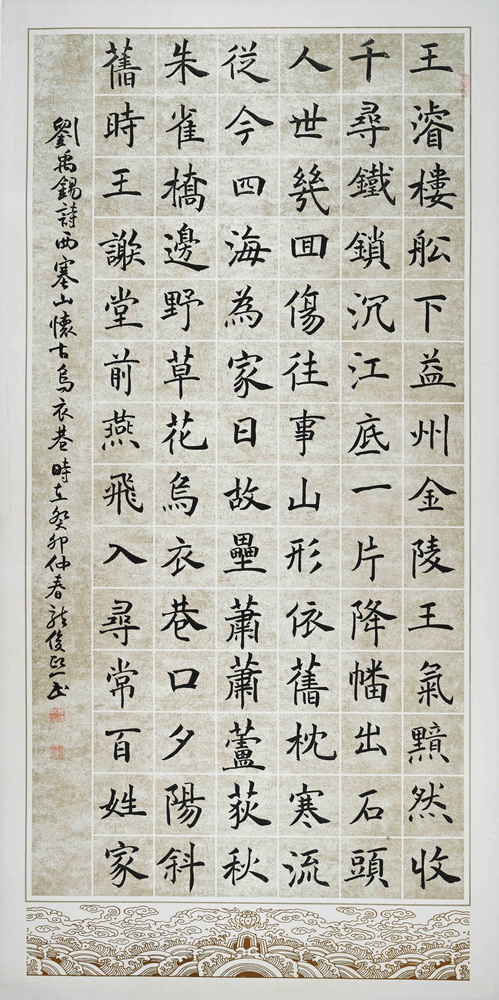 王濬樓舩下益州金陵王氣黯然收
千尋鐵鎖沉江底一片降幡出石頭
人世幾囬傷往事山形依舊枕寒流
從今四海為家日故壘蕭蕭蘆荻秋
朱雀橋邊野草花烏衣巷口夕陽斜
舊時王謝堂前燕飛入尋常百姓家
劉禹錫詩西塞山懷古烏衣巷時在癸卯仲春龙俊書